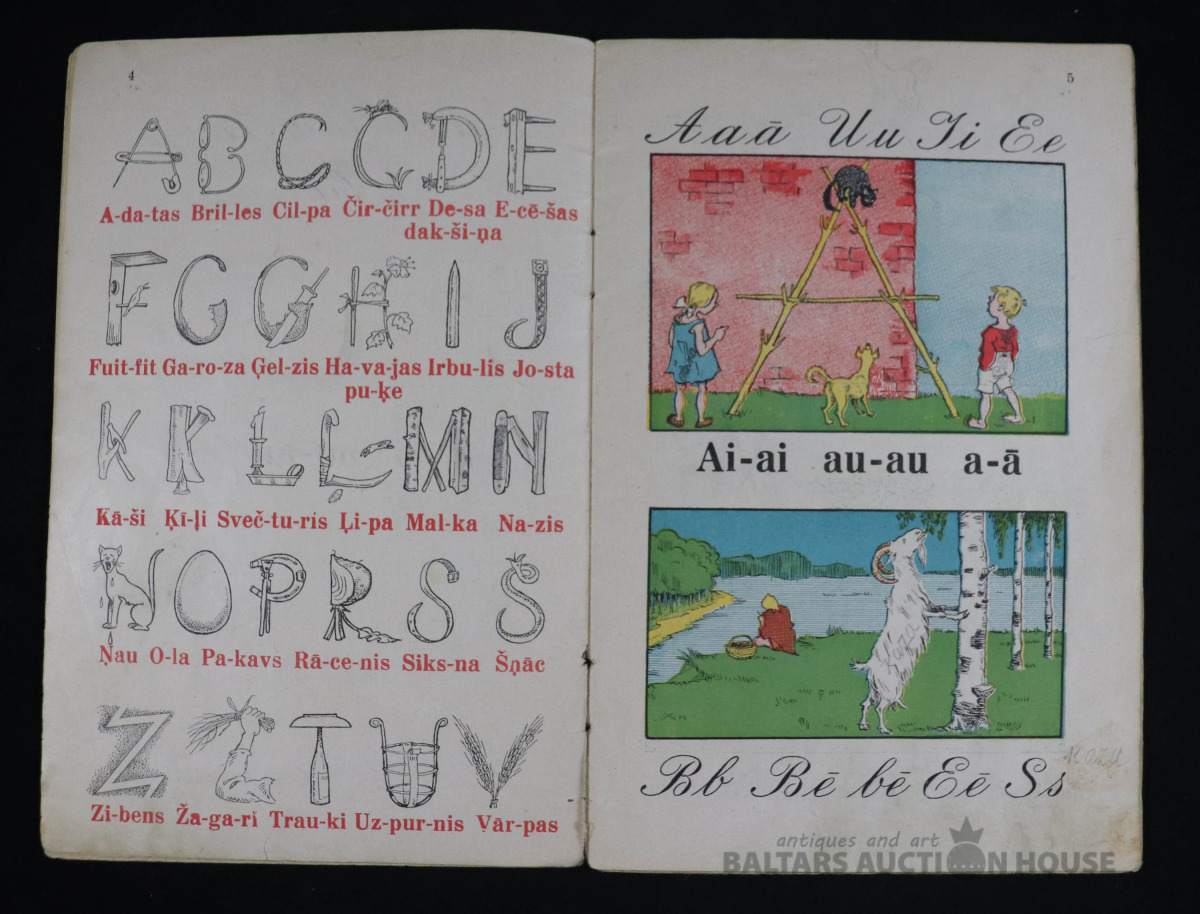 4
A B C Č D E
A-da-tas Bril-les Cil-pa Čir-čirr De-sa E-cē-šas
dak-ši-ņa
F G Ģ H I J
Fuit-fit Ga-ro-za Ģel-zis Ha-va-jas Irbu-lis Jo-sta
pu-ķe
K Ķ L Ļ M N
Kā-ši Ķī-ļi Sveč-tu-ris Ļi-pa Mal-ka Na-zis
Ņ O P R S Š
Ņau O-la Pa-kavs Rā-ce-nis Siks-na Šņāc
Z Ž T U V
Zi-bens Ža-ga-ri Trau-ki Uz-pur-nis Vār-pas
5
A a ā U u I i E e
Ai-ai au-au a-ā
Kaza
B b Bē bē Ē ē S s
antiques and art
BALTARS AUCTION HOUSE